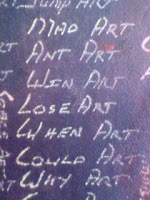 Jump Art
Mad Art
Ant Art
Win Art
Lose Art
When Art
Could Art
Why Art